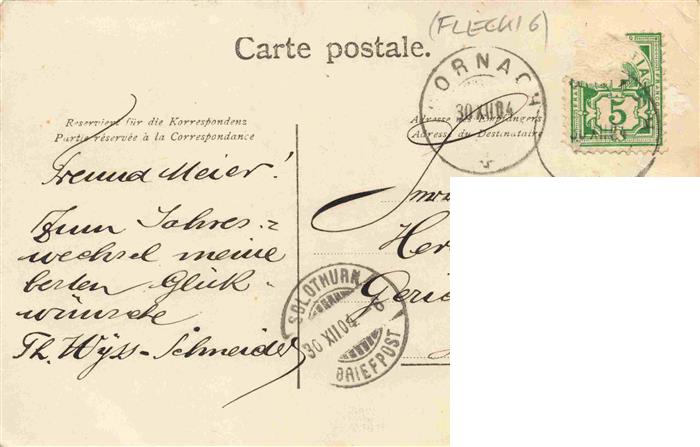 (FLECKI 6)
Carte postale.
DORNACH
30 XII 04
Reserviert für die Korrespondenz
Partie réservée à la Correspondance
Adresse des Empfängers
Adresse du Destinataire
5
Freund Meier!
Zum Jahres-
wechsel meine
besten Glück-
wünsche
Th. Wyss-Schneider
SOLOTHURN
30 XII 04
BRIEFPOST